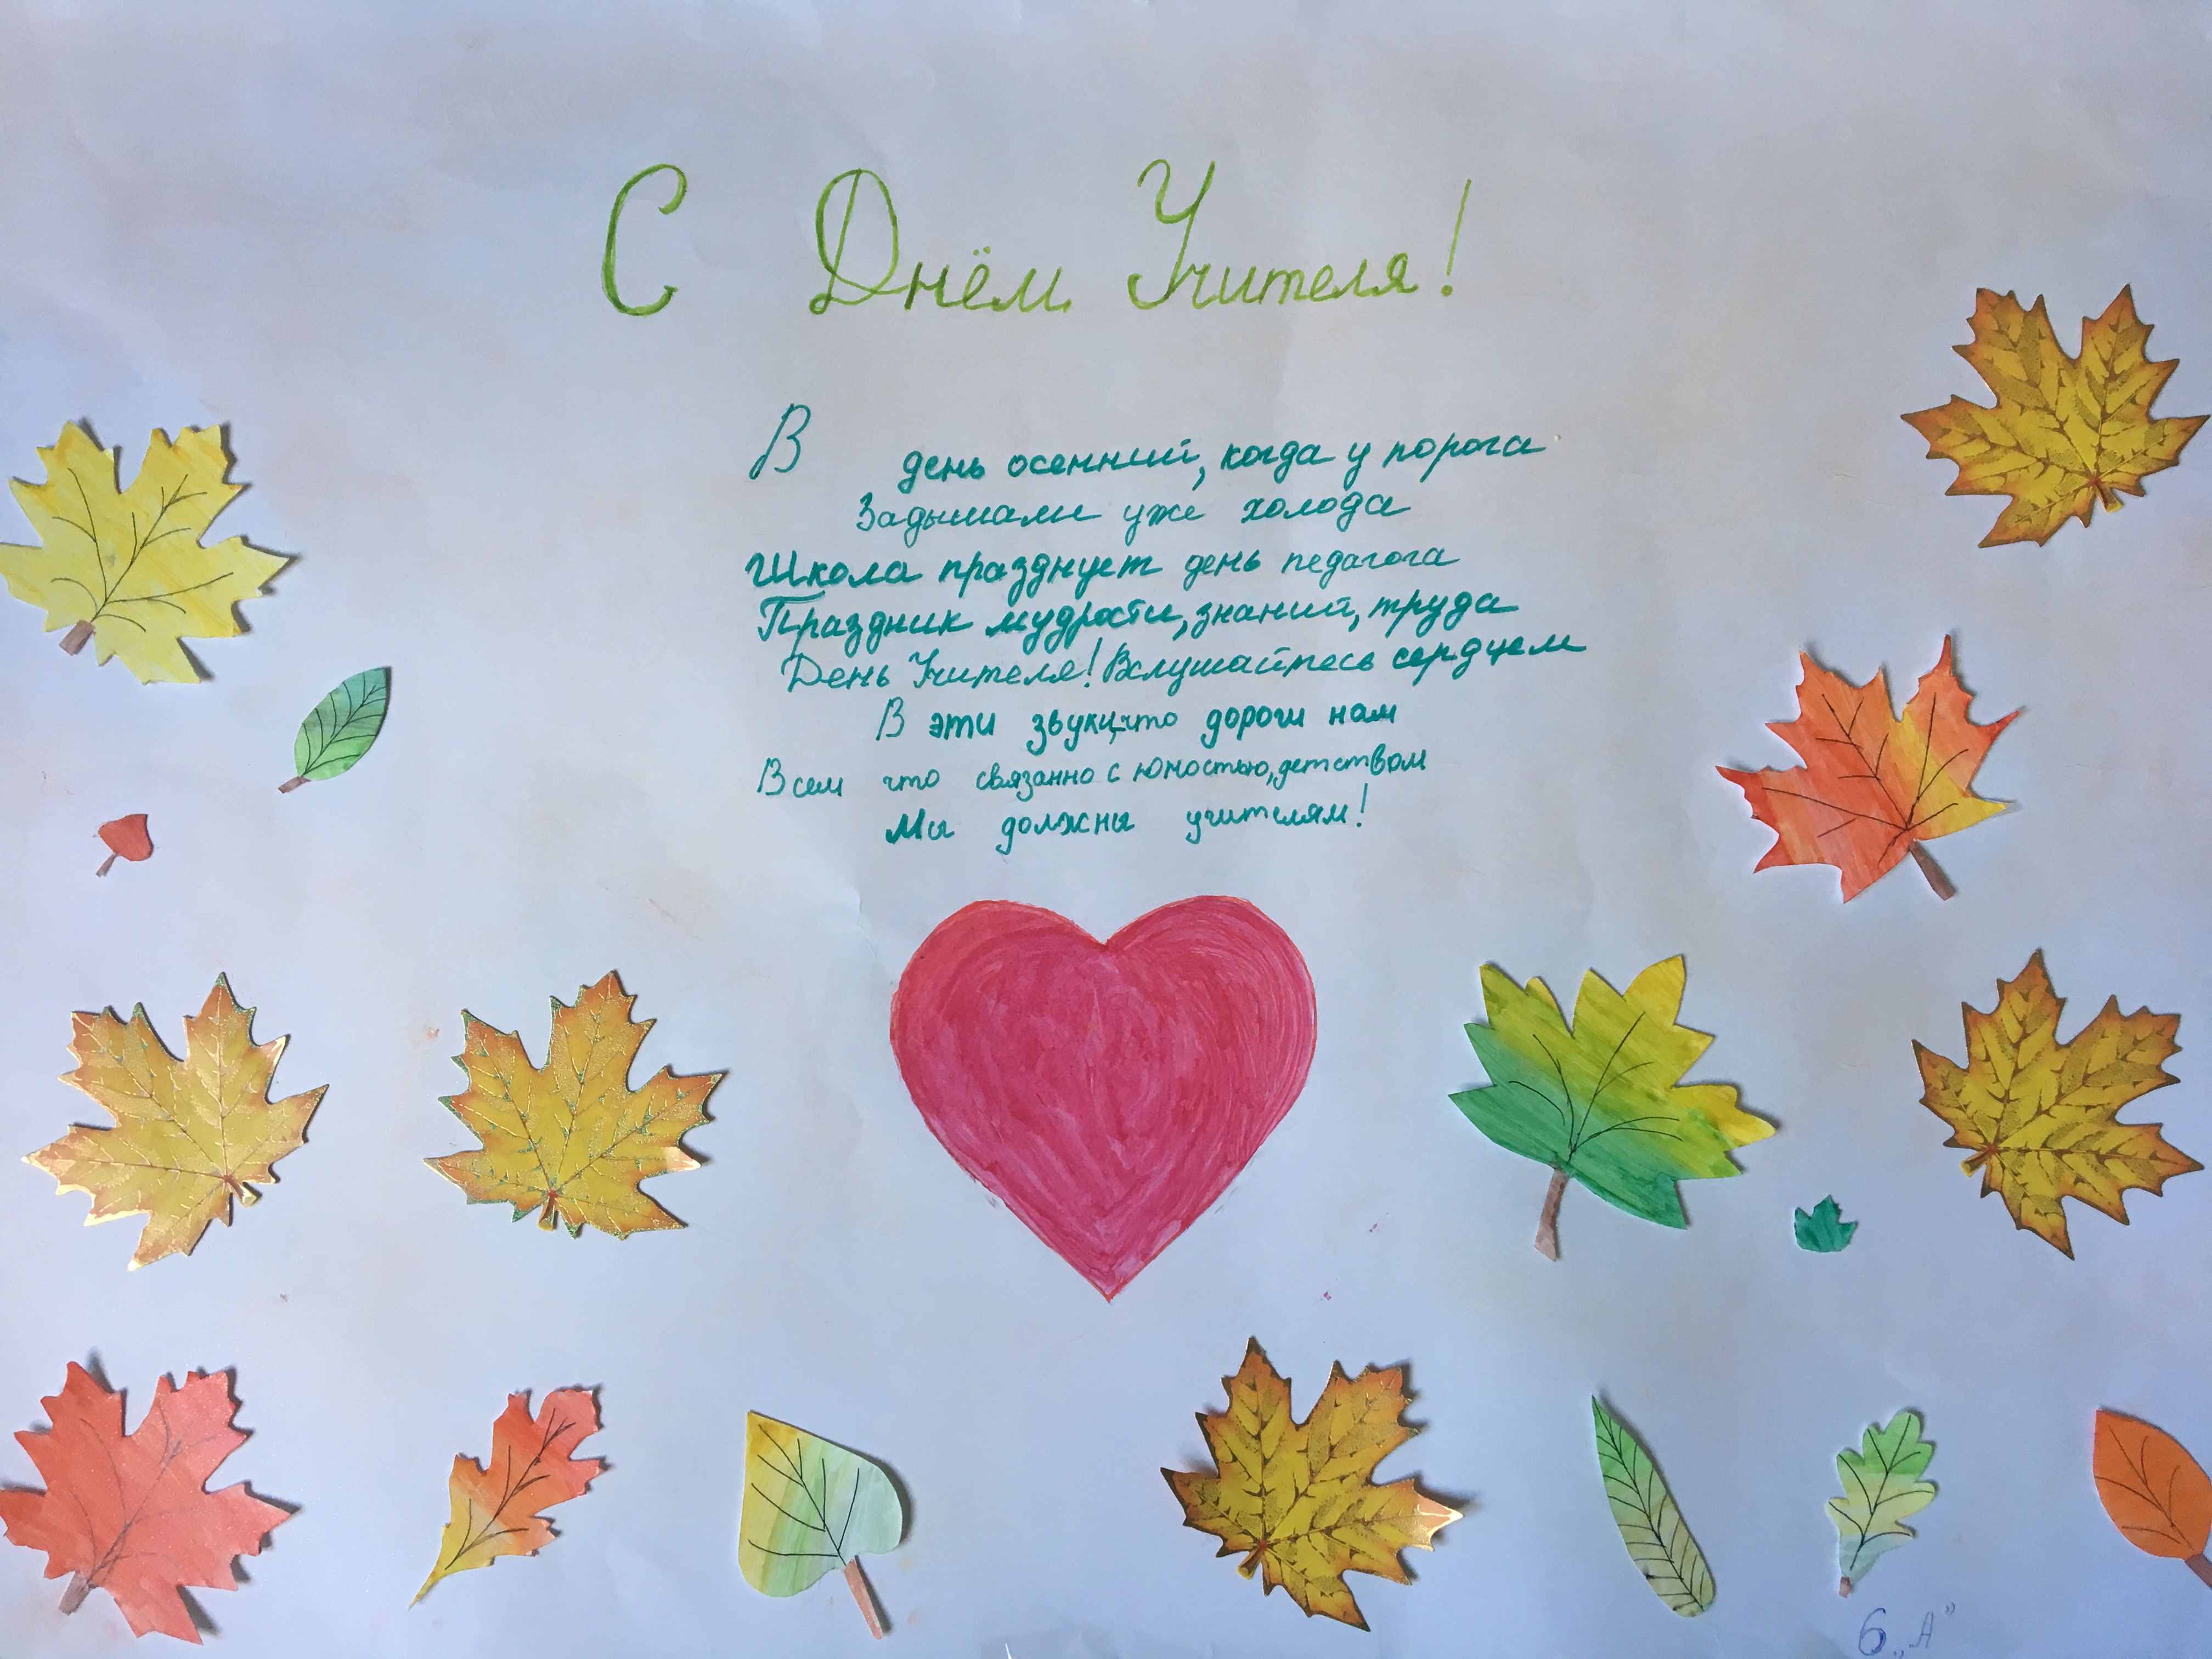 С Днём Учителя!
В день осенний, когда у порога
Задышали уже холода
Школа празднует день педагога
Праздник мудрости, знаний, труда
День Учителя! Вслушайтесь сердцем
В эти звуки, что дороги нам
Всем что связанно с юностью, детством
Мы должны учителям!
6 „А”